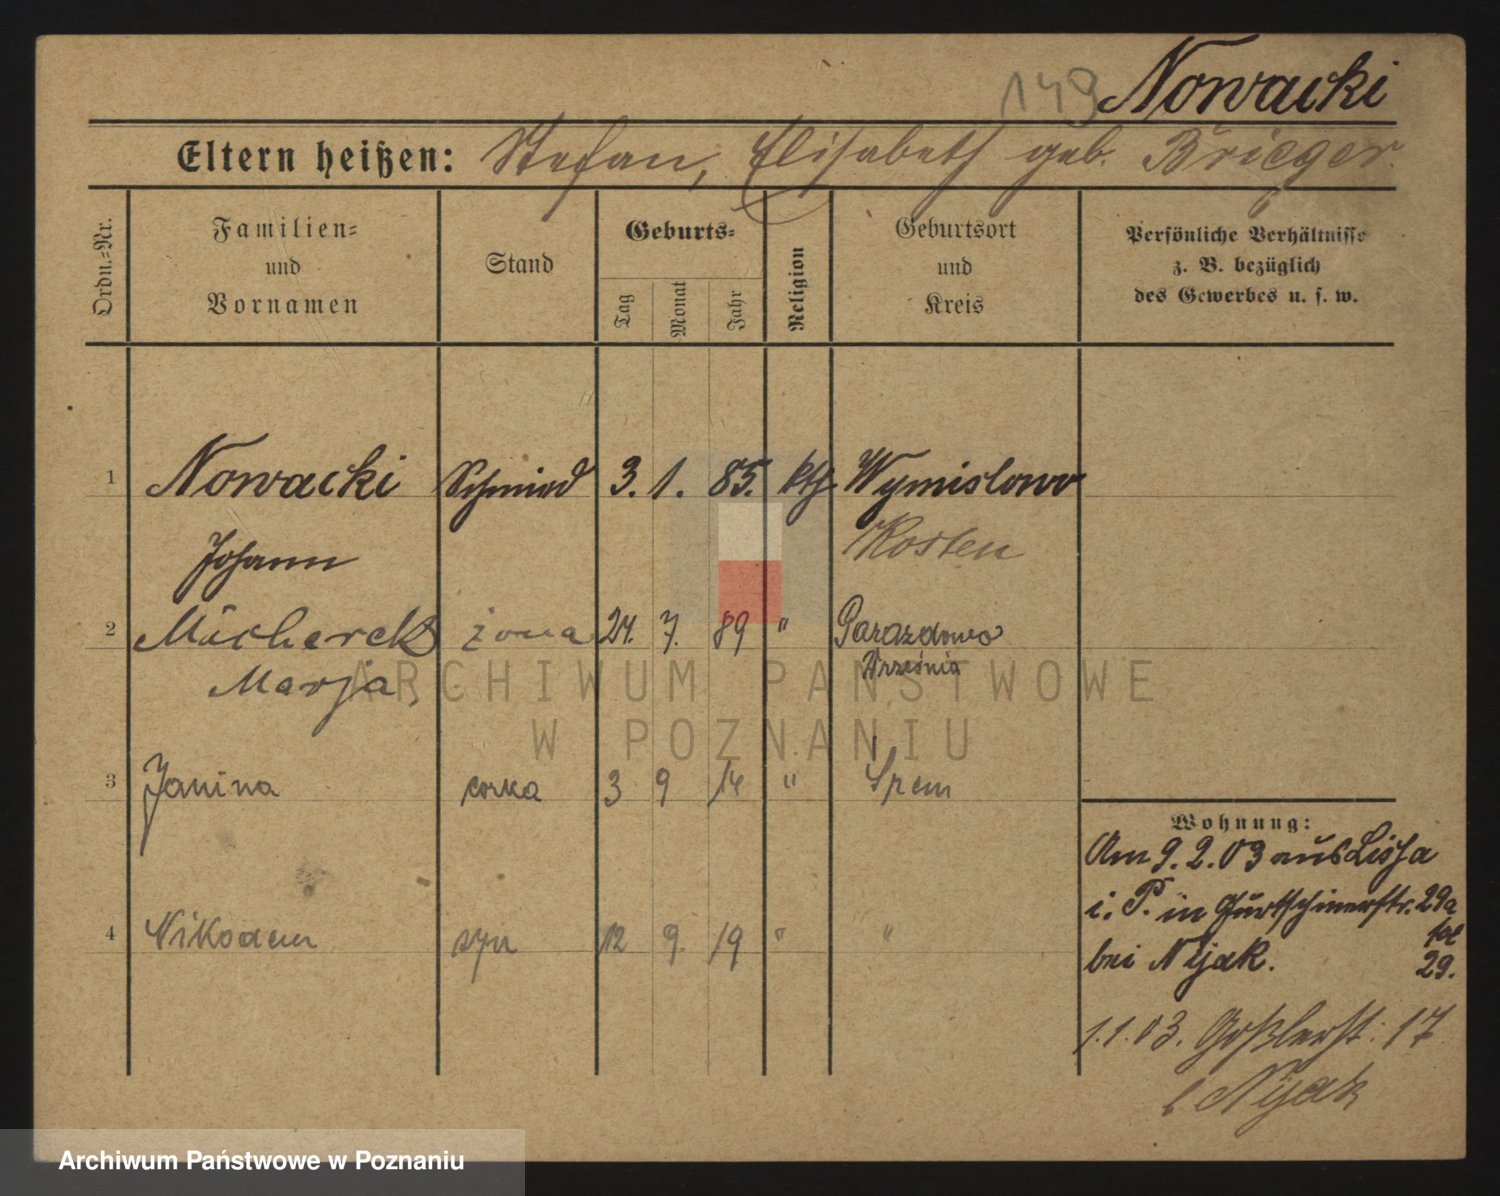 149 Nowacki
Eltern heißen: Stefan, Elisabeth geb. Brieger.
Ordn.-Nr.
Familien-
und
Vornamen
Stand
Geburts-
Tag
Monat
Jahr
Religion
Geburtsort
und
Kreis
Persönliche Verhältnisse
z. B. bezüglich
des Gewerbes u. s. w.
1 Nowacki Schmied 3. 1. 85. kth. Wymislowo
Johann Kosten
2 Mücherek żona 24. 7. 89 " Gorazdowo
Marja, Września
3 Janina corka 3 9 14 " Srem
4 Nikodem syn 12 9. 19 " "
Wohnung:
Am 9.2.03 aus Lissa
i. P. in Gurtschinerstr. 29a
bei Nijak.
29.
1.1.03. Goßlerst: 17
b Nijak
ARCHIWUM PAŃSTWOWE
W POZNANIU
Archiwum Państwowe w Poznaniu